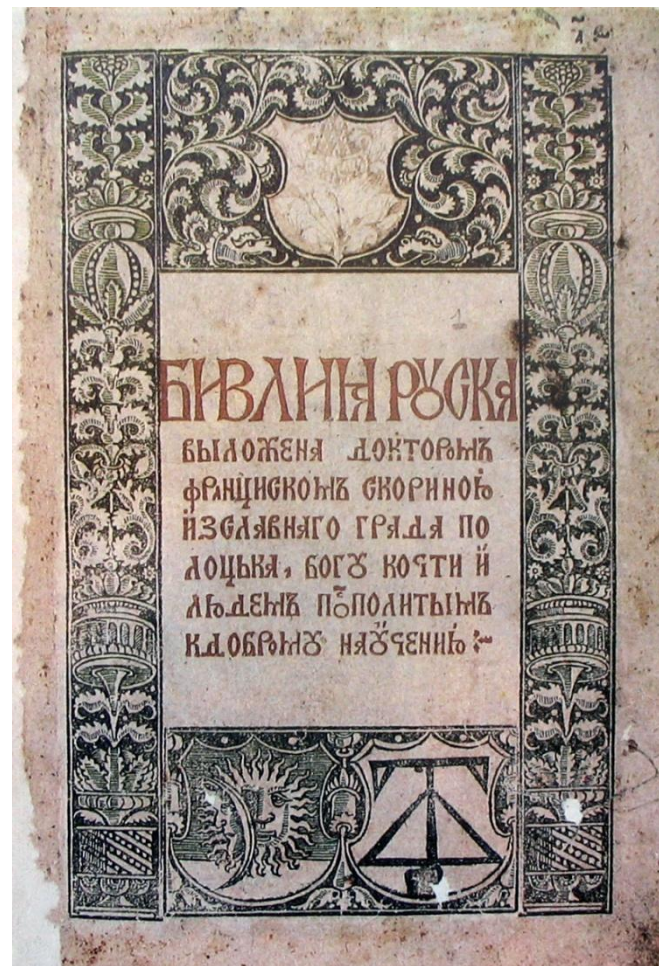 БИВЛИꙖ РꙋСКА
ВЫЛОЖЕНА ДОКТОРОМЪ
ФРАНЦИСКОМЪ СКОРИНОЮ
ИЗСЛАВНАГО ГРАДА ПО
ЛОЦЬКА, БОГꙋ КОЧТИ И
ЛЮДЕМЪ ПОСПОЛИТЫМЪ
КДОБРОМꙋ НАꙋЧЕНИЮ